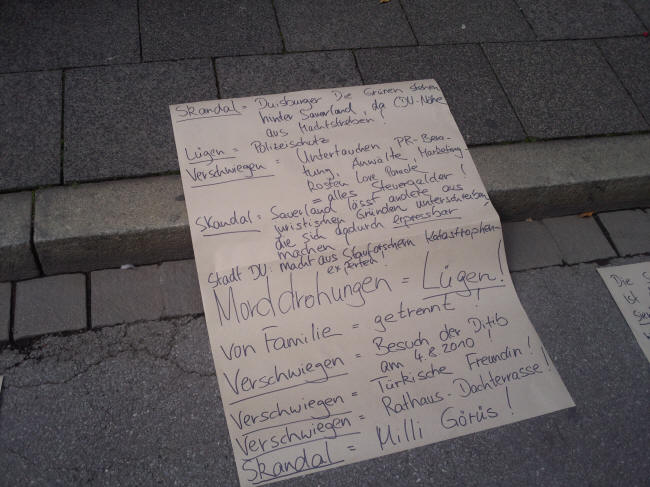 Skandal = Duisburger Die Grünen stehen
hinter Sauerland, da CDU-Nähe
aus Machtstreben!
Lügen = Polizeischutz
Verschwiegen = Untertauchen, PR-Bera-
tung, Anwälte, Marketing
Kosten Love Parade
= alles Steuergelder!
Skandal = Sauerland lässt andere aus
juristischen Gründen unterschreiben,
die sich dadurch erpressbar
machen!
Stadt DU: macht aus Stauforschern Katastrophen-
experten!
Morddrohungen = Lügen!
von Familie = getrennt!
Verschwiegen = Besuch der Ditib
am 4.8.2010!
Verschwiegen = Türkische Freundin!
Verschwiegen = Rathaus-Dachterrasse!
Skandal = Milli Görüs!
Die
ist